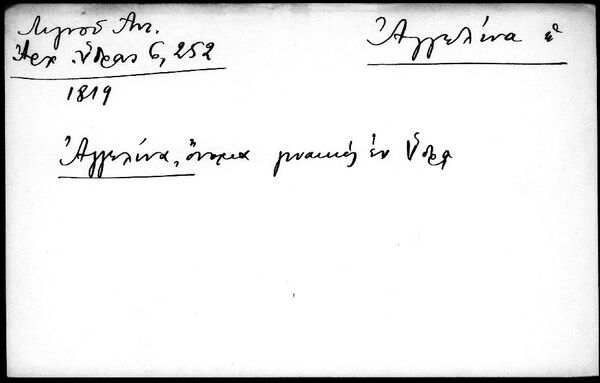 Λιγνοῦ Ἀντ.
Ἀρχ. Ὕδρας 6, 252
1819
Ἀγγελίνα ἡ
Ἀγγελίνα, ὄνομα γυναικὸς ἐν Ὕδρᾳ